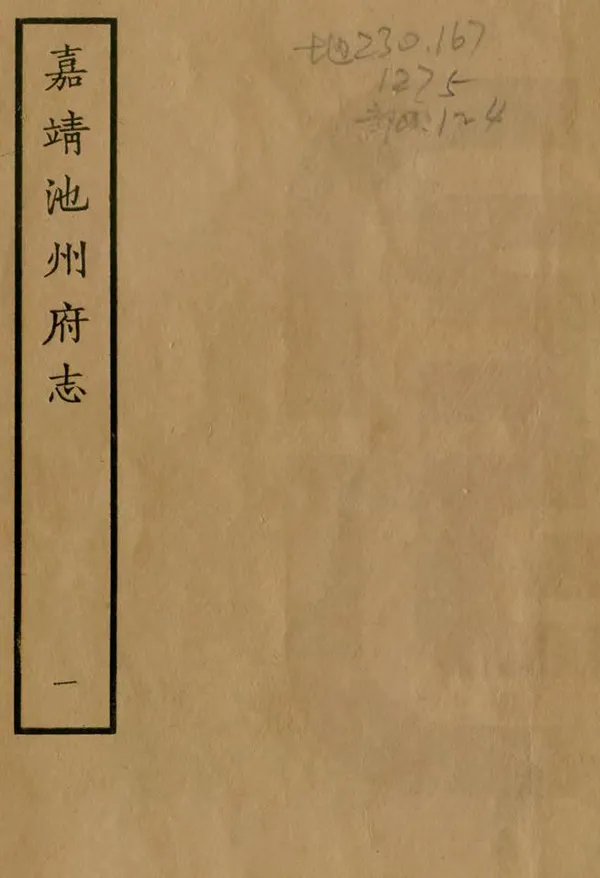 嘉靖池州府志
一
地230.167
1275
124